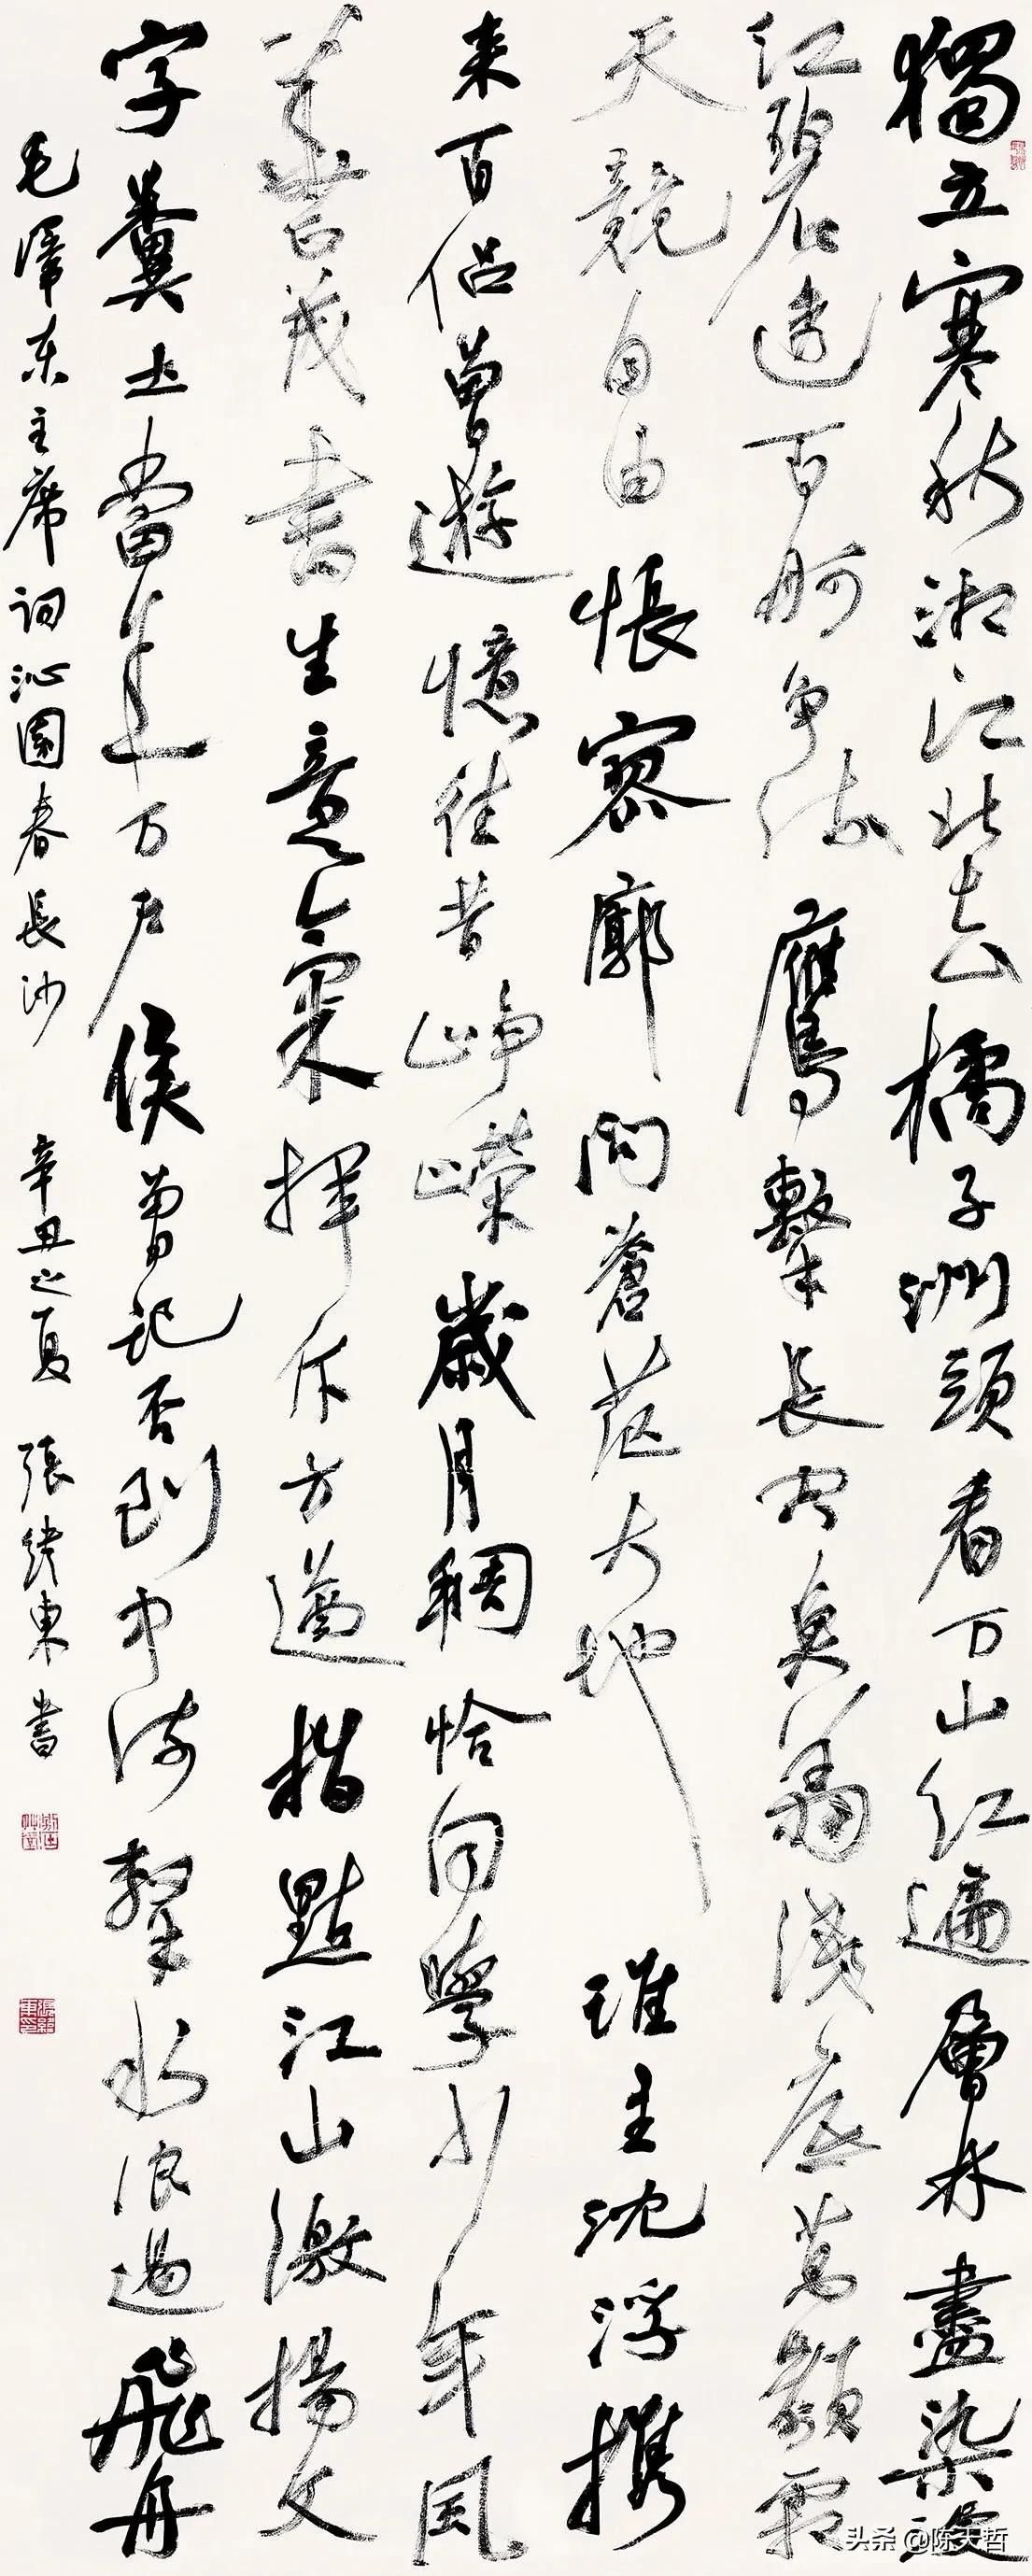 獨立寒秋湘江北去橘子洲頭看万山紅遍層林盡染漫
江碧透百舸争流鷹擊長空魚翔淺底萬類霜
天競自由悵寥廓問蒼茫大地誰主沈浮攜
来百侣曾遊憶往昔崢嶸歲月稠恰同學少年風
華正茂書生意氣揮斥方遒指點江山激揚文
字糞土當年万户侯曾記否到中流擊水浪遏飛舟
毛澤东主席词沁園春長沙 辛丑之夏 張继東書
头条 @陈天哲